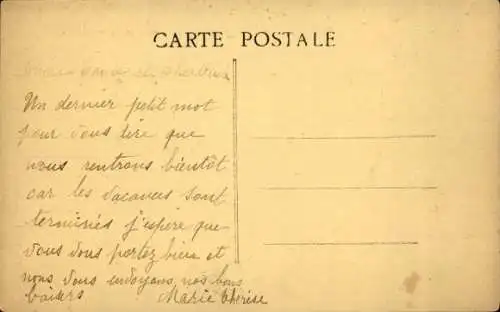 CARTE POSTALE
Un dernier petit mot
pour vous dire que
nous rentrons bientôt
car les vacances sont
terminés j'espère que
vous vous portez bien et
nous vous envoyons nos bons
baisers Marie Thérèse